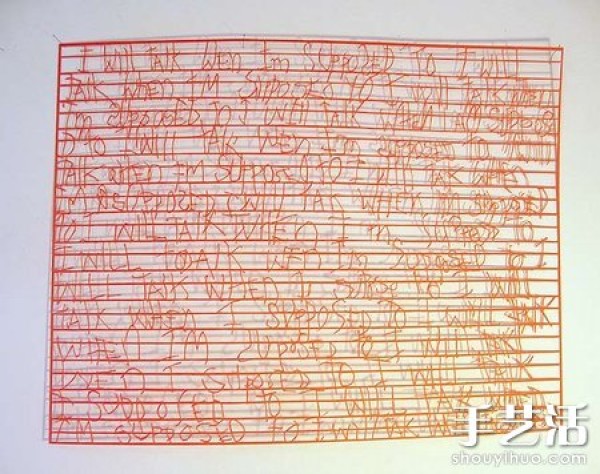 I WILL TALK WEN I'm SUPPOSED TO I WILL
TALK WHEN I'M SUPPOSED TO I WILL TALK WHEN
I'm SUPPOSED TO I WILL TALK WHEN I'm SUPPOSE
D TO I WILL TALK WEN I'm SUPPOSED TO
TALK WHEN I'M SUPPOSED TO I WILL TALK WHEN
I'M SUPPOSED I WILL TALK WHEN I'm SUPPOSED
TO I WILL TALK WHEN I'm SUPPOSED TO I
WILL TALK WEN I'm SUPPOSED TO I
WILL TALK WHEN TO I WILL
TALK WHEN I SUPPOSED TO I WILL TALK
WHEN I'M SUPOSED TO I WILL
WEN I SUPPOSED TO I WILL TALK
SUPPOSED TO I WILL TALK
I'M SUPPOSED TO I WILL TALK
手艺活
shouyihuo.com